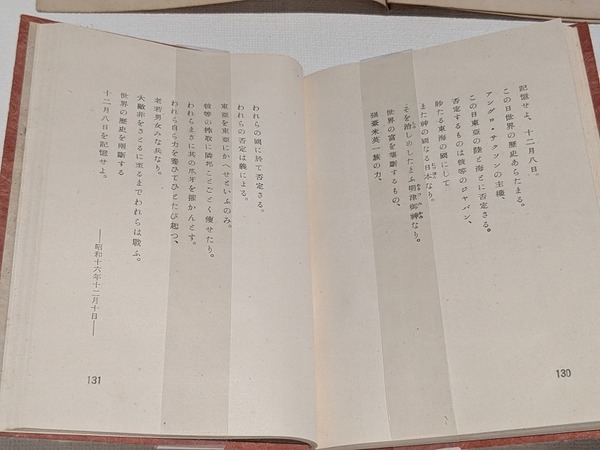 記憶せよ、十二月八日。
この日世界の歴史あらたまる。
アングロ・サクソンの主権、
この日東亜の陸と海とに否定さる。
否定するものは彼等のジャパン、
眇たる東海の國にして
また神の國なる日本なり。
そを治しめしたまふ明津御神なり。
世界の富を壟斷するもの、
強豪米英一族の力、
われらの國に於て否定さる。
われらの否定は義による。
東亜を東亜にかへせといふのみ。
彼等の搾取に隣邦ことごとく痩せたり。
われらまさに其の爪牙を摧かんとす。
われら自ら力を養ひてひとたび起つ、
老若男女みな兵なり。
大敵非をさとるに至るまでわれらは戰ふ。
世界の歴史を兩斷する
十二月八日を記憶せよ。
——昭和十六年十二月十日——
130
131